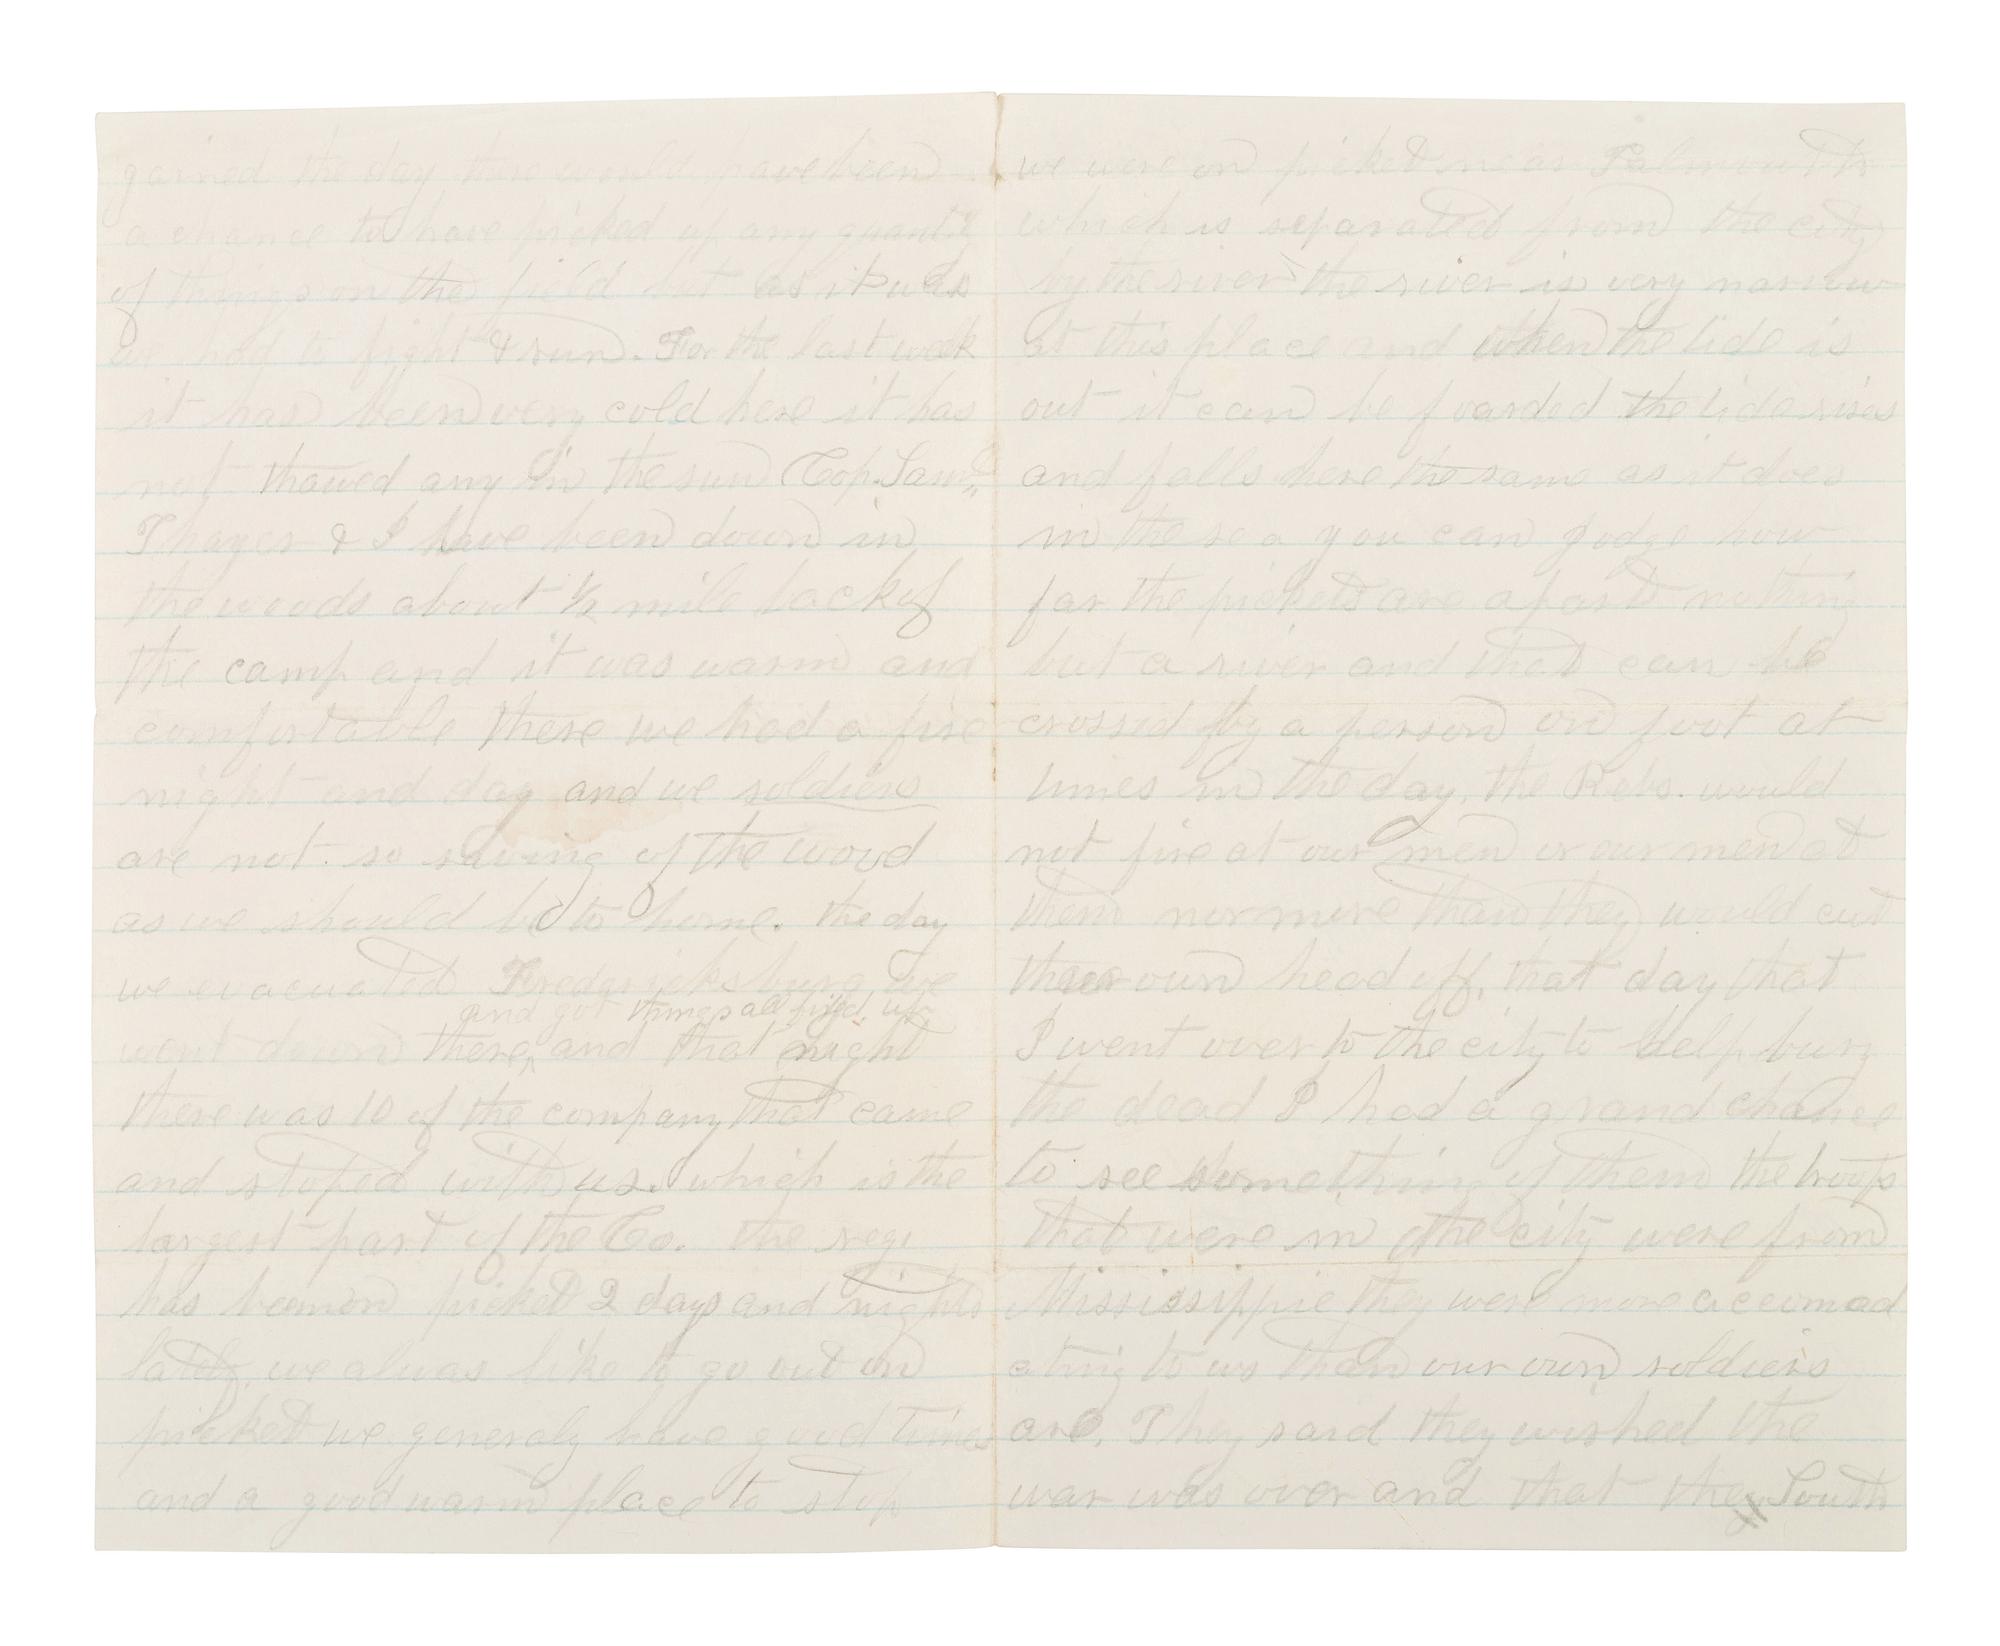 gained the day there would have been
a chance to have picked up any quantity
of things on the field but as it was
we had to fight & run. For the last week
it has been very cold here it has
not thawed any in the sun Cop. Sam.
Thayer & I have been down in
the woods about ½ mile back of
the camp and it was warm and
comfortable there we had a fire
night and day and we soldiers
are not so saving of the wood
as we should be to home. the day
we evacuated Fredericksburg we
and got things all fixed up
went down there, and that night
there was 10 of the company that came
and stoped with us. which is the
largest part of the Co. the regi
has been on picket 2 days and nights
lately. we alwas like to go out on
picket we generaly have good times
and a good warm place to stop
we were on picket near Falmouth
which is separated from the city
by the river the river is very narrow
at this place and when the tide is
out it can be foarded the tide rises
and falls here the same as it does
in the sea you can godge how
far the pickets are apart nothing
but a river and that can be
crossed by a person on foot at
times in the day. the Rebs. would
not fire at our men or our men at
them nor more than they would cut
their own head off. that day that
I went over to the city to help bury
the dead I had a grand chance
to see something of them the troops
that were in the city were from
Mississippie they were more accomad
ating to us than our own soldiers
are. They said they wished the
war was over and that the South